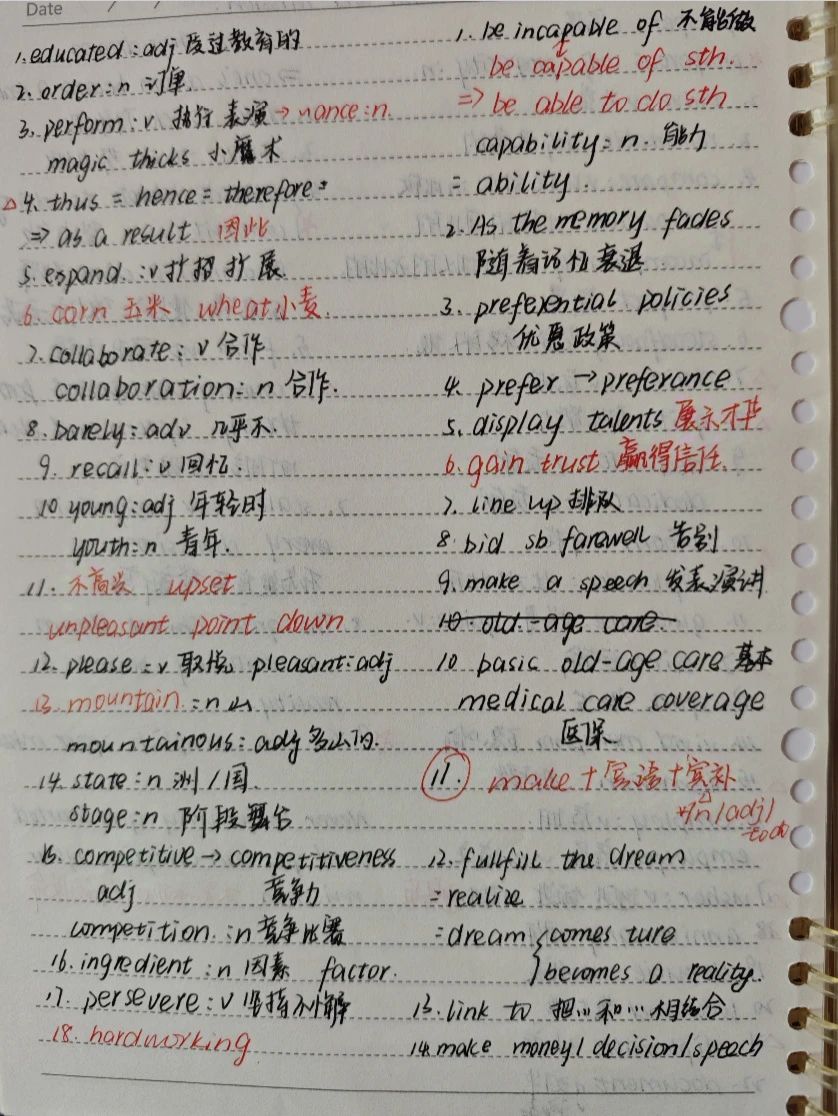 Date / /
1. educated : adj 受过教育的
2. order : n 订单.
3. perform : v 执行 表演 → mance : n.
magic thicks 小魔术
△ 4. thus = hence = therefore =
⇒ as a result 因此
5. expand : v 扩招 扩展
6. corn 玉米 wheat 小麦
7. collaborate : v 合作
collaboration : n 合作.
8. barely : adv 几乎不.
9. recall : v 回忆.
10 young : adj 年轻时
youth : n 青年.
11. 不高兴 upset
unpleasant point down
12. please : v 取悦 pleasant : adj
13. mountain : n 山
mountainous : adj 多山的.
14. state : n 洲 / 国.
stage : n 阶段 舞台
15. competitive → competitiveness
adj 竞争力
competition : n 竞争 比赛
16. ingredient : n 因素 factor.
17. persevere : v 坚持不懈
18. hardworking
1. be incapable of 不能做
be capable of sth.
⇒ be able to do sth
capability : n. 能力
= ability.
2. As the memory fades
随着记忆衰退
3. preferential policies
优惠政策
4. prefer → preferance
5. display talents 展示才华
6. gain trust 赢得信任
7. line up 排队
8. bid sb farewell 告别
9. make a speech 发表演讲
10. old-age care.
10 basic old-age care 基本
medical care coverage
医保
11. make + 宾语 + 宾补
n / adj /
to do
12. fullfill the dream
= realize
= dream { comes ture
becomes a reality.
13. link to 把... 和... 相结合
14. make money / decision / speach